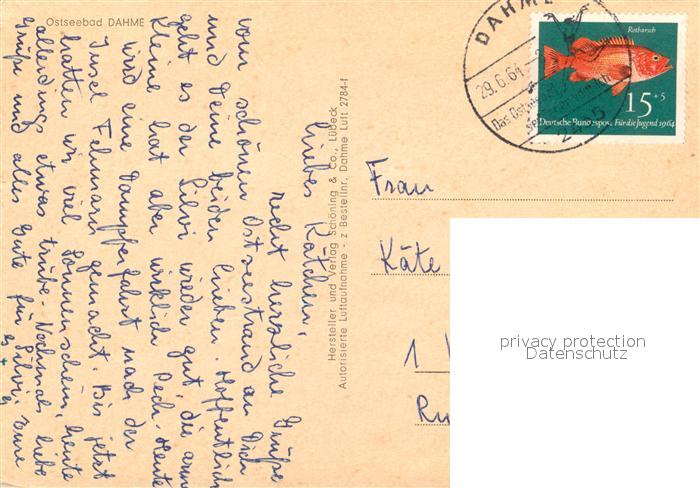 Ostseebad DAHME
Liebes Kätchen,
recht herzliche Grüße
vom schönen Ostseestrand an Dich
und Deine beiden Lieben. Hoffentlich
geht es der Silvi wieder gut, die arme
Kleine hat aber wirklich Pech. Heute
wird eine Dampferfahrt nach der
Insel Fehmarn gemacht. Bis jetzt
hatten wir viel Sonnenschein, heute
allerdings etwas trübe. Nochmals liebe
Grüße und alles Gute für Silvi, Eure
Hersteller und Verlag Schöning & Co., Lübeck
Autorisierte Luftaufnahme - z Bestellnr. Dahme Luft 2784-f
DAHME
29.6.64
Das Ostseebad
Rotbarsch
15+5
Deutsche Bundespost Für die Jugend 1964
Frau
Käte
1
Ru
privacy protection
Datenschutz